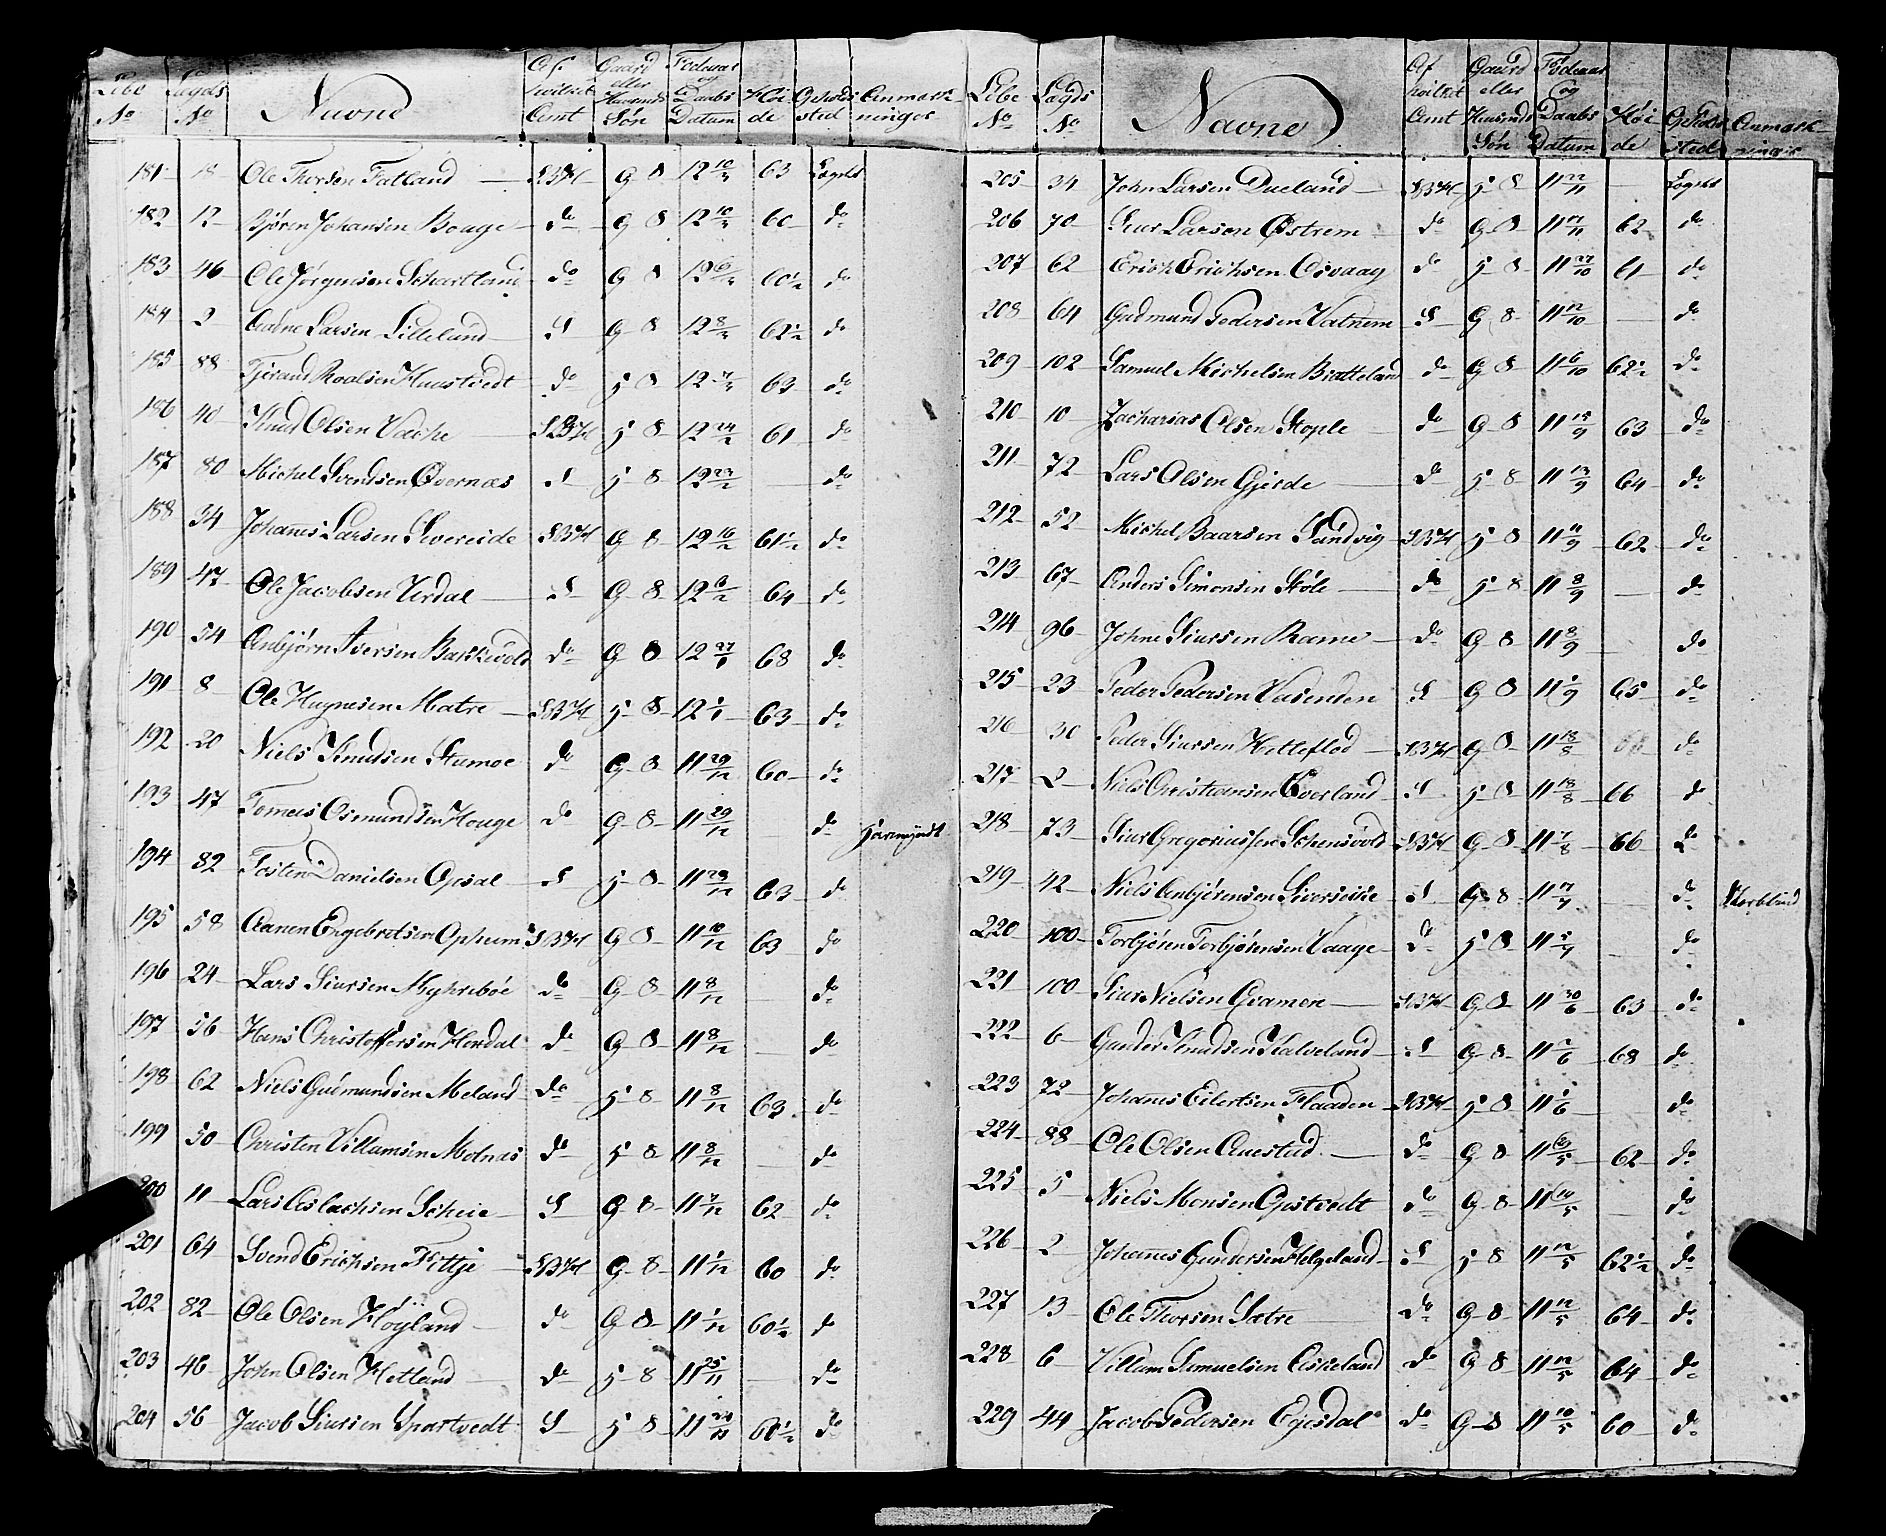 Løbe No Lægds No Navne Af hvilket Amt Gaard eller Huusmds Søn Fødeaar og Daabs Datum Høide Opholdssted Anmærkninger
181 18 Ole Thorsen Fatland SBH G S 12 10/3 63 Lægdet
182 12 Bjøren Johansen Bouge do G S 12 10/3 60 do
183 46 Ole Jørgensen Schartland do G S 12 60½ do
184 2 Aadne Larsen Lilleland S G S 12 8/3 62½ do
185 88 Tjerand Roalsen Huustvedt do H S 12 63 do
186 40 Knud Olsen Vache SBH H S 12 24/2 61 do
187 80 Michel Svendsen Øvernæs S H S 12 do
188 34 Johanes Larsen Sivereide SBH G S 12 16/2 61½ do
189 47 Ole Jacobsen Urdal S G S 12 64 do
190 54 Anbjørn Iversen Bakkevold do G S 12 27/1 68 do
191 8 Ole Hugnesen Matre SBH H S 12 1/1 63 do
192 20 Niels Knudsen Stumoe do G S 11 29/12 60 do
193 47 Tomeis Osmundsen Houge do G S 11 29/12 do
194 82 Tosten Danielsen Opsal S H S 11 63 do
195 58 Aanen Engebretsen Opheim SBH G S 11 10/12 63 do
196 24 Lars Siursen Myhrebøe do G S 11 8/12 do
197 56 Hans Christoffersen Hendal do G S 11 8/12 do
198 62 Niels Gudmundsen Meland do H S 11 8/12 63 do
199 50 Christen Villumsen Molnæs do H S 11 8/12 do
200 11 Lars Aslachsen Scheie S G S 11 7/12 62 do
201 64 Svend Erichsen Fittje SBH G S 11 1/12 60 do
202 82 Ole Olsen Høyland do G S 11 1/12 60½ do
203 46 John Olsen Hetland do H S 11 25/11 do
204 56 Jacob Siursen Opsartvedt S H S 11 60½ do
Løbe No Lægds No Navne Af hvilket Amt Gaard eller Huusmds Søn Fødeaar og Daabs Datum Høide Opholdssted Anmærkninger
205 34 John Larsen Dueland SBH H S 11 22/11 Lægdet
206 70 Siur Larsen Østrem do G S 11 17/11 62 do
207 62 Erich Erichsen Osvaag do H S 11 27/10 61 do
208 64 Gudmund Pedersen Vatnem S G S 11 12/10 do
209 102 Samuel Michelsen Bratteland do G S 11 6/10 62½ do
210 10 Zacharias Olsen Stople do G S 11 15/9 63 do
211 72 Lars Olsen Gjerde do H S 11 13/9 64 do
212 52 Michel Baarsen Sandvig SBH H S 11 11/9 62 do
213 67 Anders Simonsen Støle do H S 11 8/9 do
214 96 Johne Siursen Rame do G S 11 8/9 do
215 23 Peder Pedersen Vasenden S G S 11 1/9 65 do
216 30 Peder Siursen Hetleflod SBH G S 11 18/8 66 do
217 2 Niels Christiansen Everland S H S 11 18/8 66 do
218 73 Siur Gregoriussen Schensvold SBH G S 11 1/8 66 do
219 42 Niels Anbjørensen Siverseche S G S 11 7/7 do
220 100 Torbjøren Torbjørensen Vaage do H S 11 do
221 100 Siur Nielsen Qvamen SBH G S 11 30/6 63 do
222 6 Gunder Knudsen Kalveland S G S 11 68 do
223 72 Johanes Eilertsen Flaaden SBH H S 11 1/6 do
224 88 Ole Olsen Auestad do G S 11 62 do
225 5 Niels Monsen Opstvedt do G S 11 do
226 2 Johanes Gundersen Helgeland S H S 11 12/5 62½ do
227 13 Ole Thorsen Sætre do G S 11 12/5 64 do
228 6 Villum Samuelsen Eskeland do G S 11 12/5 64 do
229 44 Jacob Pedersen Egesdal do G S 11 10/5 60 do